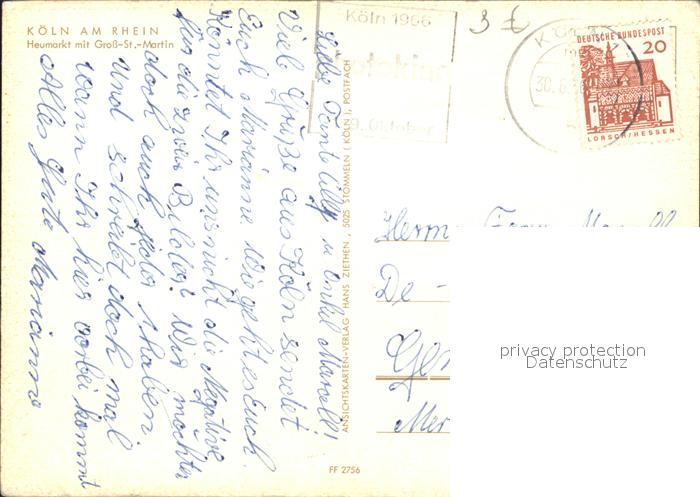 KÖLN AM RHEIN
Heumarkt mit Groß-St.-Martin
Köln 1966
9. Oktober
3 €
KÖLN
30.6.
DEUTSCHE BUNDESPOST
20
LORSCH/HESSEN
Liebe Tante Willy u Onkel Marcell!
Viel Grüße aus Köln sendet
Euch Marianne. Wie geht es Euch.
Könntet Ihr uns nicht die Negative
für die zwei Bilder! Wir möchten
doch auch haben
und schreibt doch mal
wann Ihr hier vorbei kommt
Alles Gute Marianne
ANSICHTSKARTEN-VERLAG HANS ZIETHEN, 5025 STOMMELN (KÖLN), POSTFACH
FF 2756
De -
privacy protection
Datenschutz